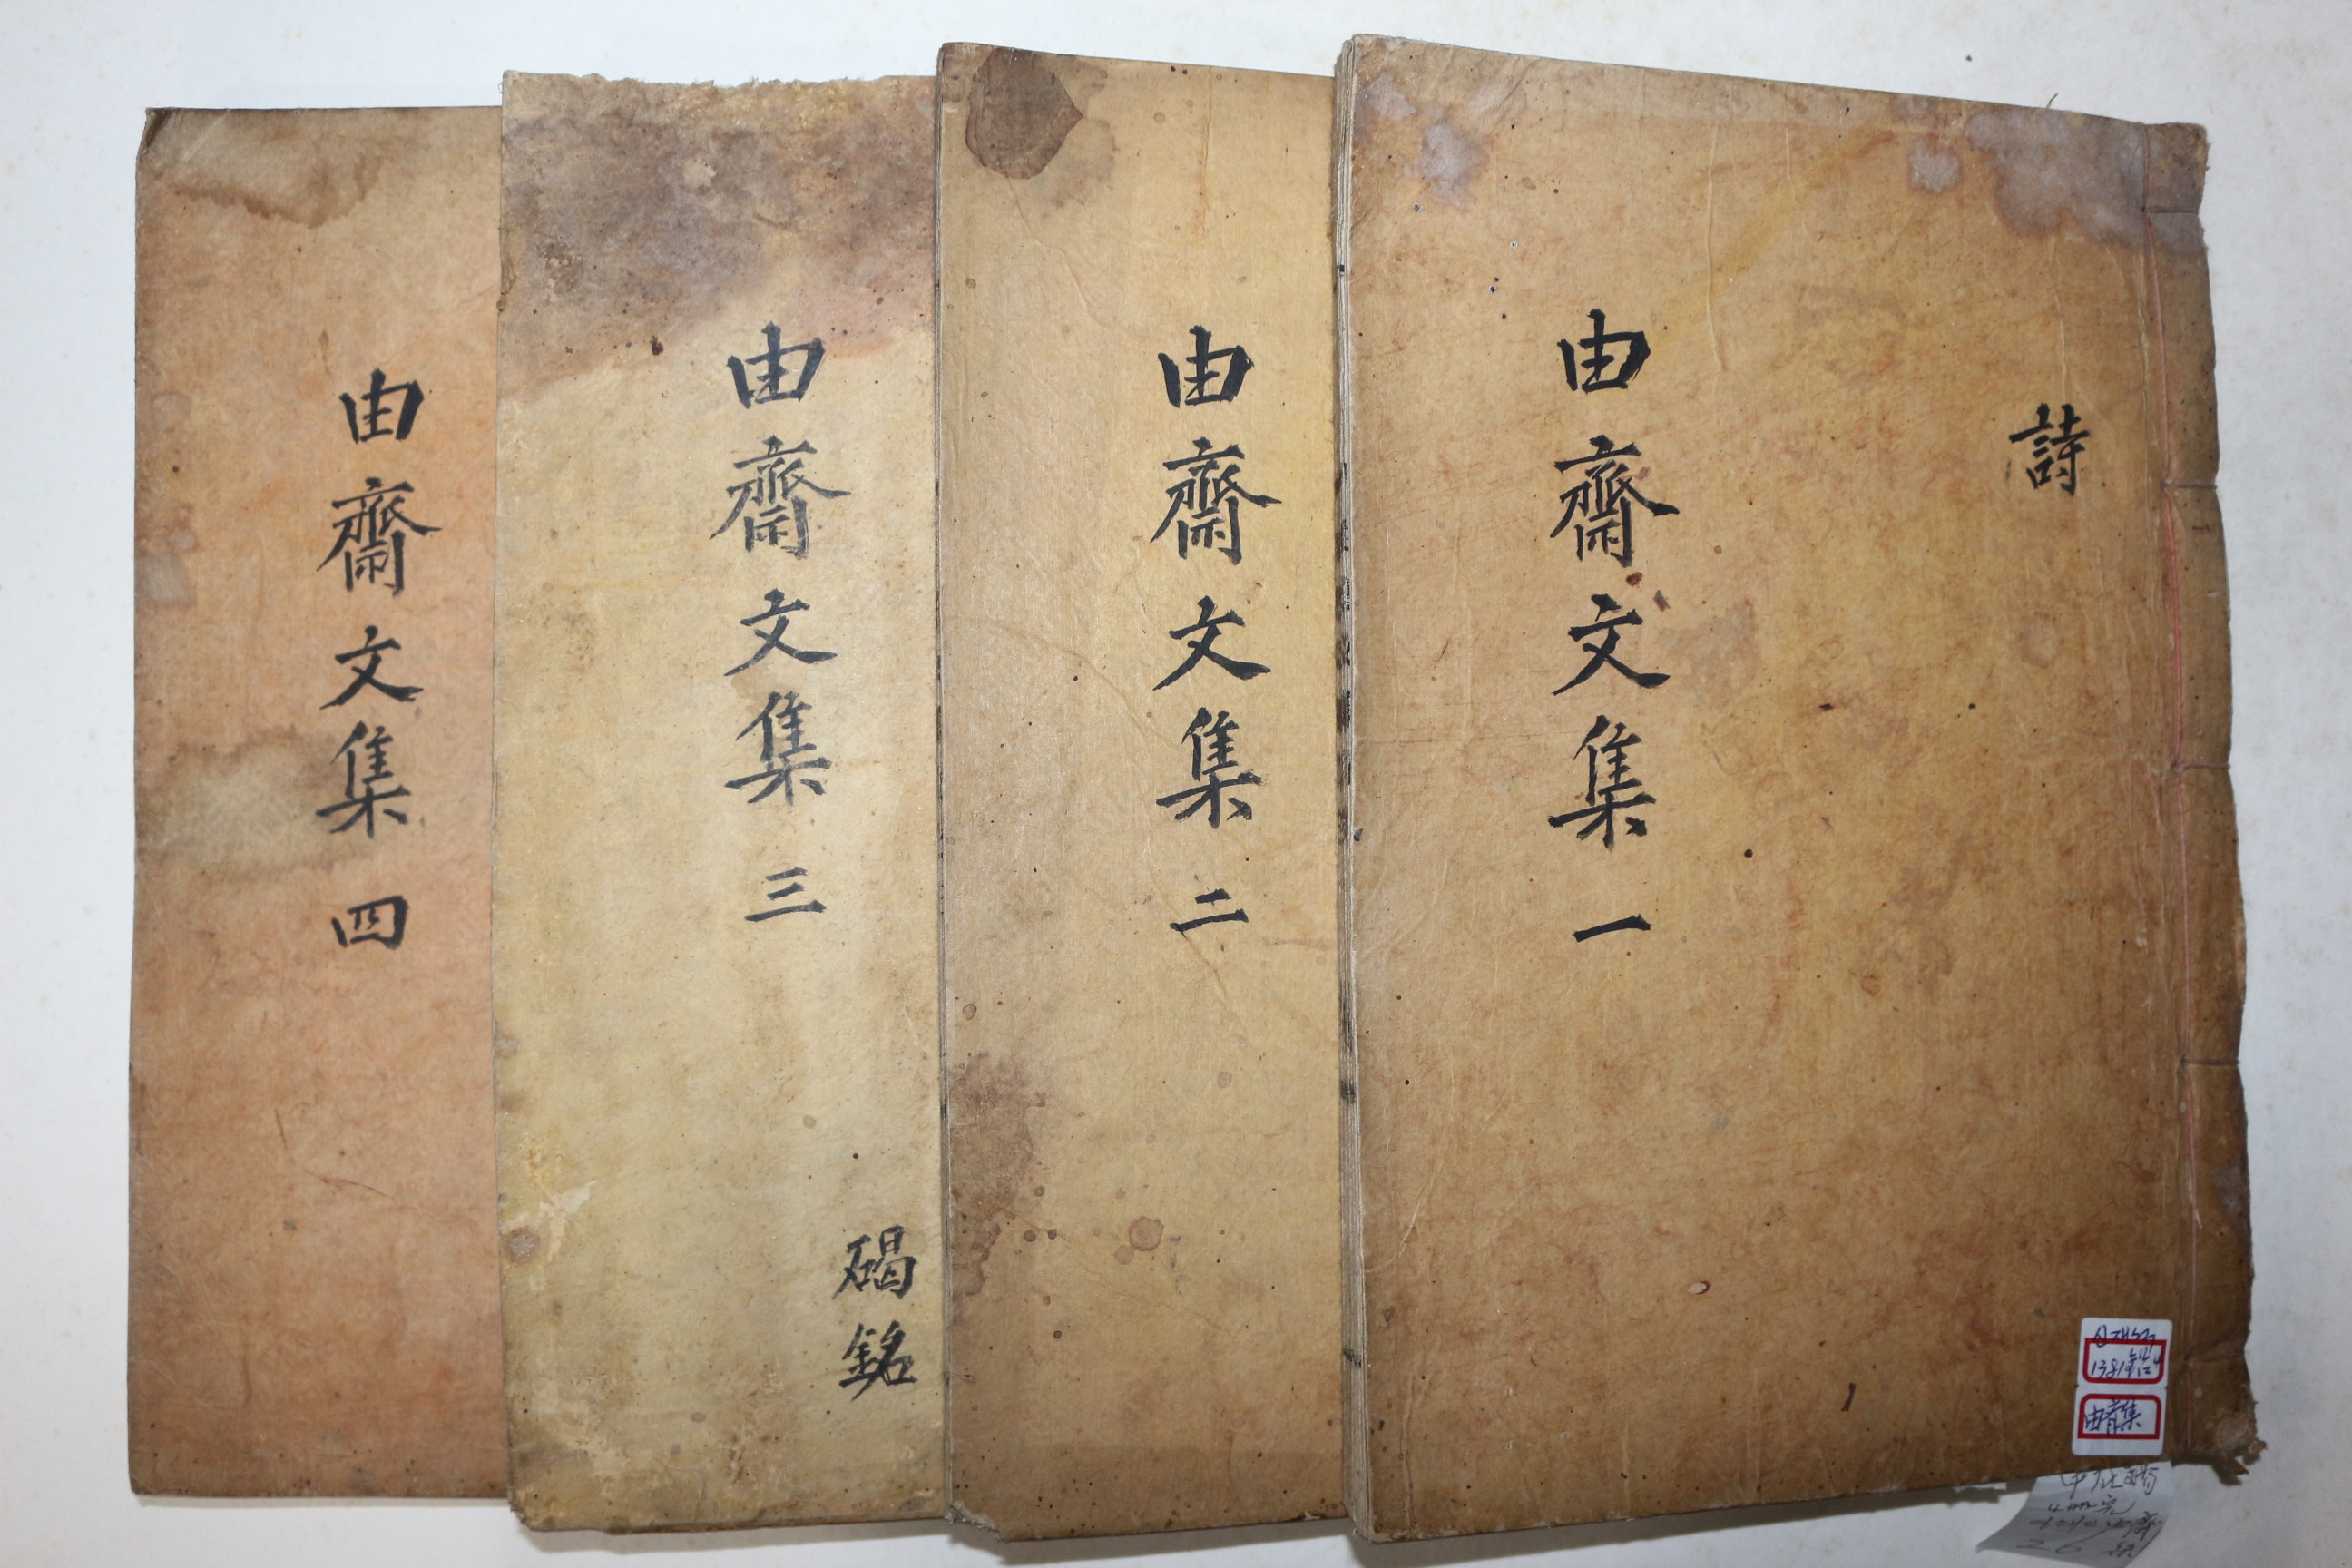 詩
由齋文集 一
由齋文集 二
由齋文集 三
碣銘
由齋文集 四